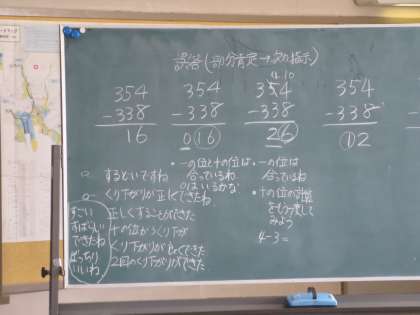 誤答(部分肯定→次の指示)
354
-338
16
354
-338
016
4 10
354
-338
26
354
-338
12
・一の位と十の位は
合っているね
0はいるかな
・一の位は
合っているね
・十の位の計算
をもう一度して
みよう
4-3=
するといいですね
くり下がりが正しくできたね
すごい
すばらしい
できたね
ばっちり
いいね
正しくすることができた
十の位からくり下が
くり下がりが
2回のくり下がりができた